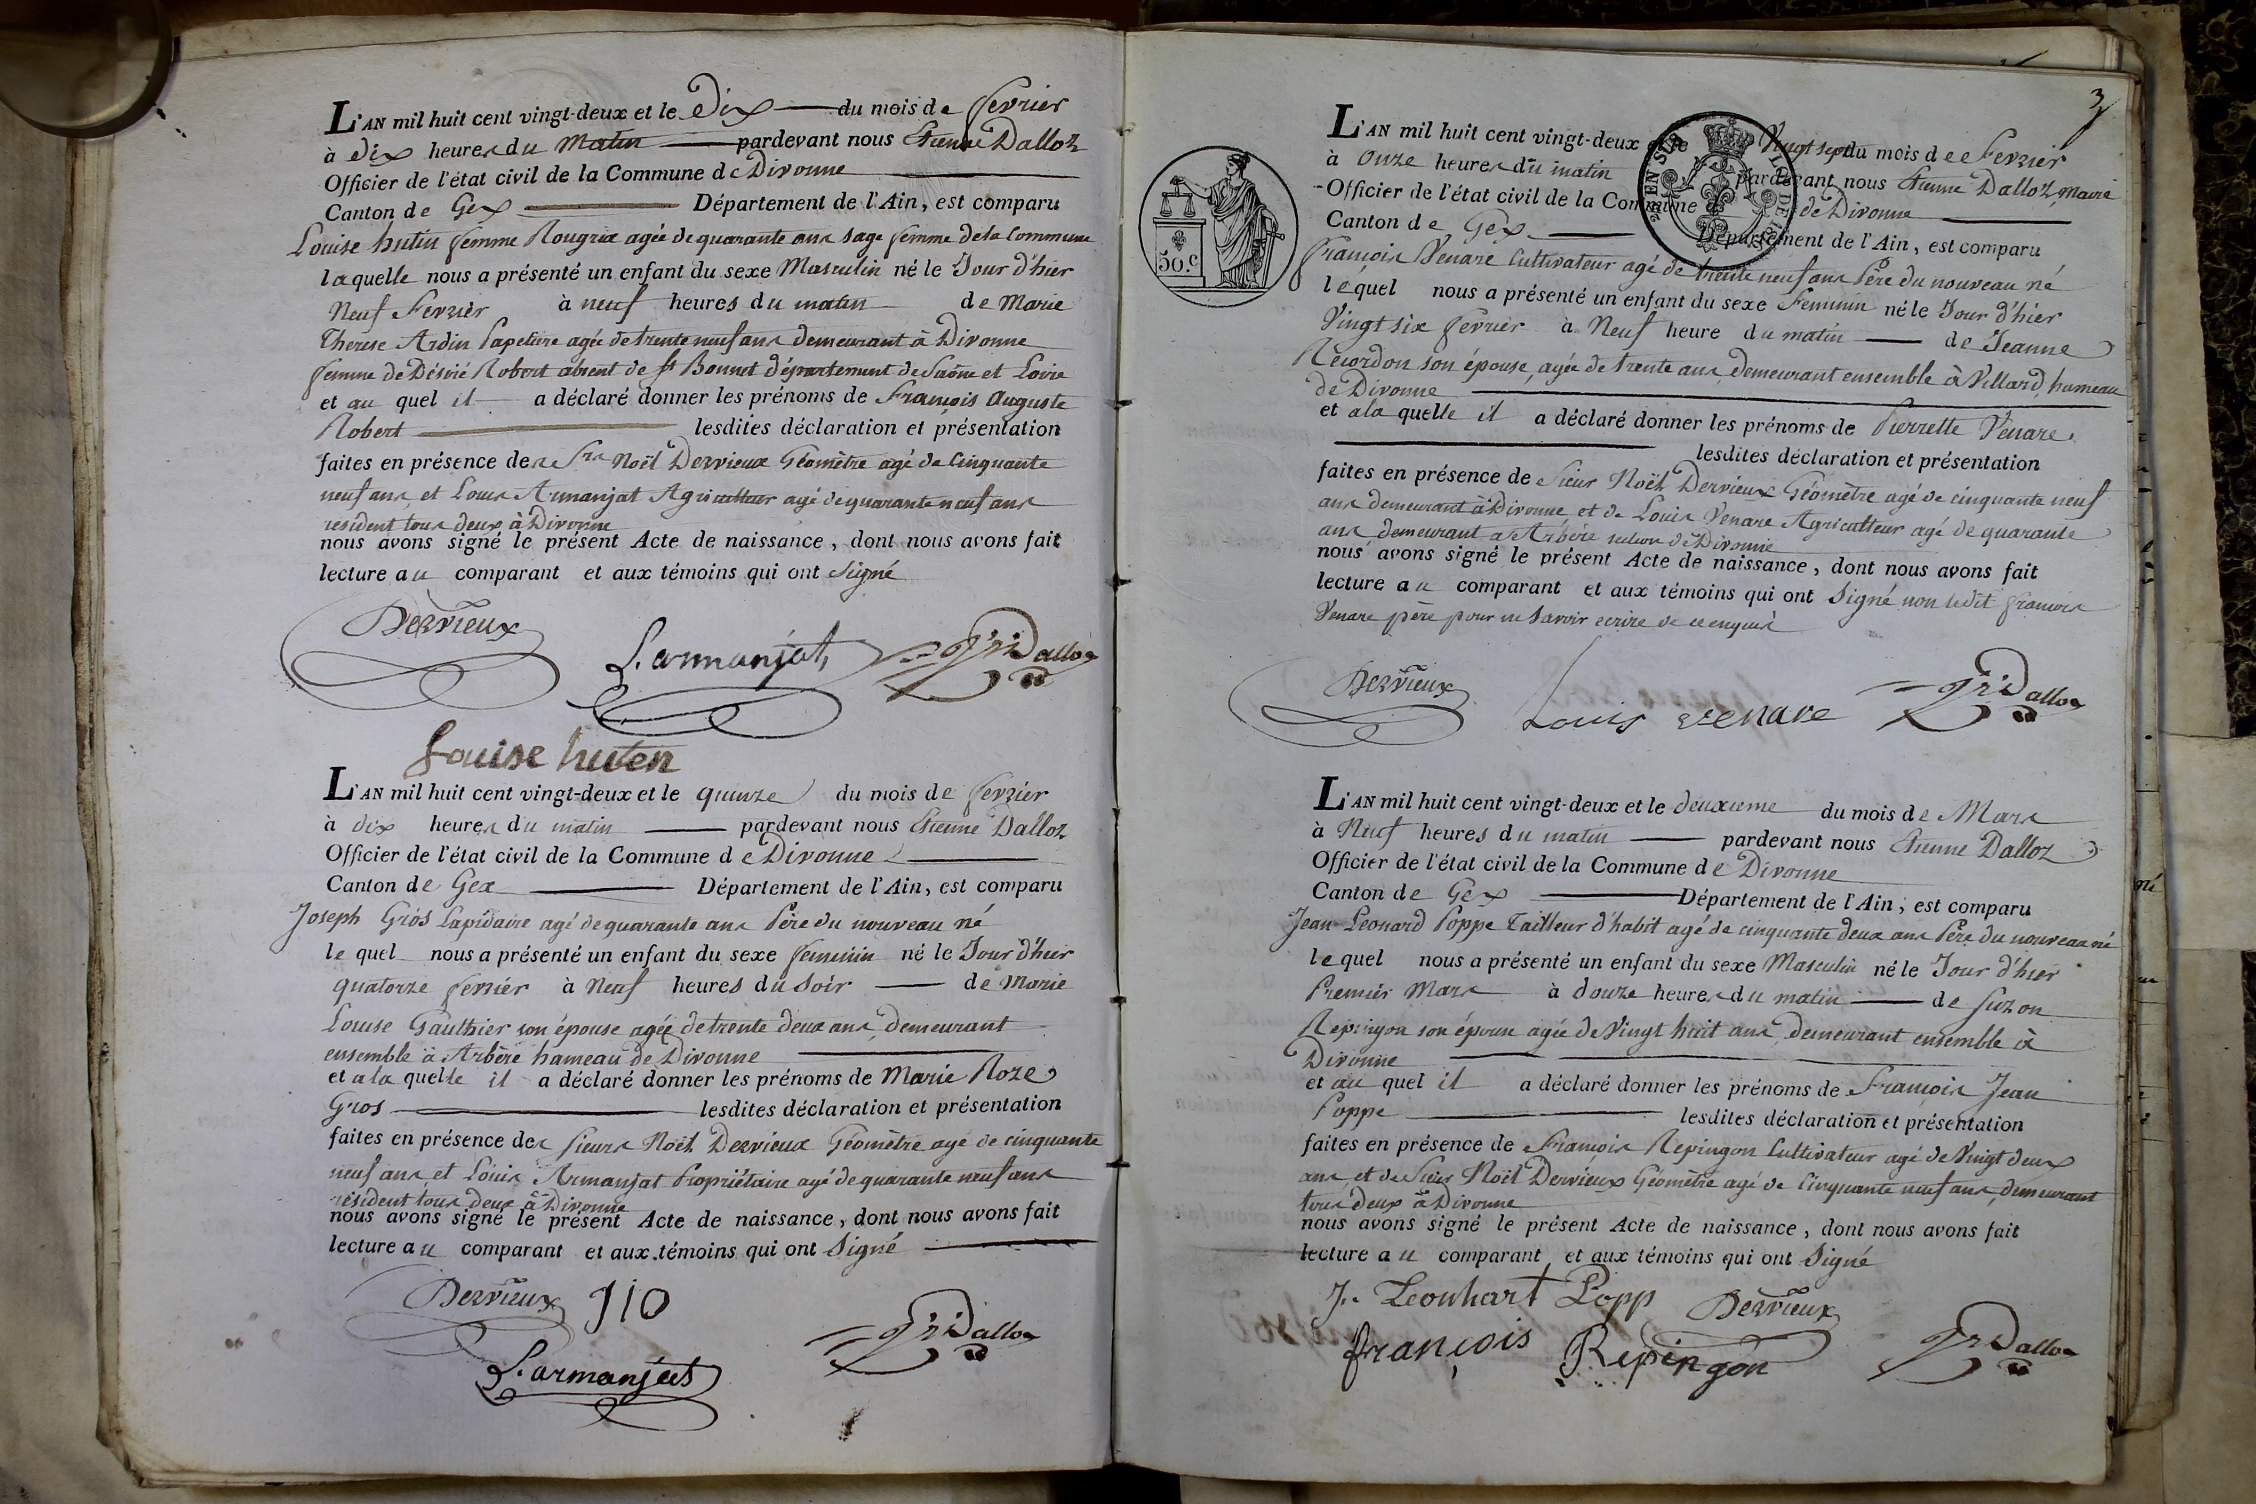 L'AN mil huit cent vingt-deux et le Dix du mois de fevrier
à Dix heures du Matin pardevant nous Etienne Dalloz
Officier de l'état civil de la Commune de Divonne
Canton de Gex Département de l'Ain, est comparu
Louise hutin femme Rougrix agée de quarante ans sage femme de la Commune
laquelle nous a présenté un enfant du sexe Masculin né le Jour d'hier
Neuf Fevrier à neuf heures du matin de Marie
Therese Ardin Papetiere agée de trente neuf ans demeurant à Divonne
femme de Désiré Robert absent de st Bonnet département de Saône et Loire
et au quel il a déclaré donner les prénoms de François Auguste
Robert lesdites déclaration et présentation
faites en présence des Srs Noël Dervieux Géomètre agé de Cinquante
neuf ans et Louis Armanjat Agriculteur agé de quarante neuf ans
résident tous deux à Divonne
nous avons signé le présent Acte de naissance, dont nous avons fait
lecture au comparant et aux témoins qui ont Signé
Dervieux
L. armanjat
Dalloz
Louise huten
L'AN mil huit cent vingt-deux et le quinze du mois de fevrier
à dix heures du matin pardevant nous Etienne Dalloz
Officier de l'état civil de la Commune de Divonne
Canton de Gex Département de l'Ain, est comparu
Joseph Gros Lapidaire agé de quarante ans Père du nouveau né
lequel nous a présenté un enfant du sexe feminin né le Jour d'hier
quatorze fevrier à Neuf heures du Soir de Marie
Louise Gauthier son épouse agée de trente deux ans, demeurant
ensemble à Arbère hameau de Divonne
et a la quelle il a déclaré donner les prénoms de Marie Roze
Gros lesdites déclaration et présentation
faites en présence des sieurs Noël Dervieux Géomètre agé de cinquante
neuf ans et Louis Armanjat Propriétaire agé de quarante neuf ans
résident tous deux à Divonne
nous avons signé le présent Acte de naissance, dont nous avons fait
lecture au comparant et aux témoins qui ont Signé
Dervieux
L. armanjat
Dalloz
3
50.c
L'AN mil huit cent vingt-deux et le Vingt sept du mois de Fevrier
à onze heures du matin pardevant nous Etienne Dalloz, maire
Officier de l'état civil de la Commune de Divonne
Canton de Gex Département de l'Ain, est comparu
François Venare Cultivateur agé de trente neuf ans Père du nouveau né
lequel nous a présenté un enfant du sexe Feminin né le Jour d'hier
Vingt six fevrier à Neuf heure du matin de Jeanne
Recordon son épouse, agée de trente ans, demeurant ensemble à Villard, hameau
de Divonne
et a la quelle il a déclaré donner les prénoms de Pierrette Venare
lesdites déclaration et présentation
faites en présence de Sieur Noël Dervieux Géomètre agé de cinquante neuf
ans demeurant à Divonne et de Louis Venare Agriculteur agé de quarante
ans demeurant a Arbère section de Divonne
nous avons signé le présent Acte de naissance, dont nous avons fait
lecture au comparant et aux témoins qui ont Signé non ledit françois
Venare père pour ne savoir ecrire de ce enquis
Dervieux
Louis venare
Dalloz
L'AN mil huit cent vingt-deux et le deuxieme du mois de Mars
à Neuf heures du matin pardevant nous Etienne Dalloz
Officier de l'état civil de la Commune de Divonne
Canton de Gex Département de l'Ain, est comparu
Jean Leonard Poppe Tailleur d'habit agé de cinquante deux ans Père du nouveau né
lequel nous a présenté un enfant du sexe Masculin né le Jour d'hier
Premier Mars à douze heures du matin de Suzon
Repingon son épouse agée de Vingt huit ans, demeurant ensemble à
Divonne
et au quel il a déclaré donner les prénoms de François Jean
Poppe lesdites déclaration et présentation
faites en présence de François Repingon Cultivateur agé de Vingt deux
ans, et de Sieur Noël Dervieux Géomètre agé de Cinquante neuf ans, demeurant
tous deux à Divonne
nous avons signé le présent Acte de naissance, dont nous avons fait
lecture au comparant et aux témoins qui ont Signé
J. Leonhart Popp
Dervieux
françois Repingon
Dalloz